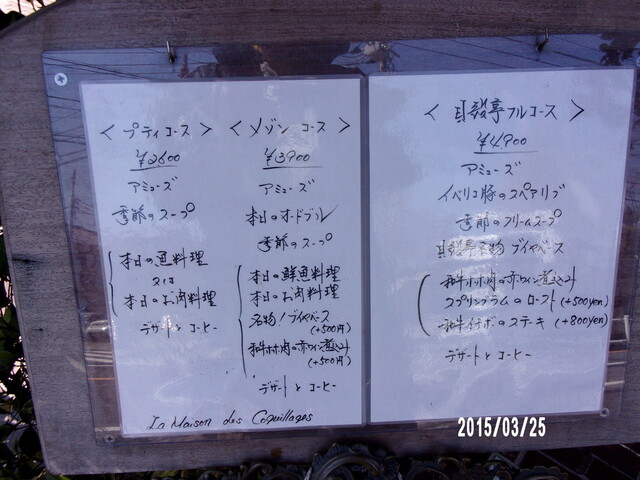 < プティ コース >
¥2600
アミューズ
季節のスープ
本日の魚料理
又は
本日のお肉料理
デザートとコーヒー
< メゾン コース >
¥3900
アミューズ
本日のオードブル
季節のスープ
本日の鮮魚料理
本日のお肉料理
名物!ブイヤベース
(+500円)
和牛ホホ肉の赤ワイン煮込み
(+500円)
デザートとコーヒー
La Maison des Coquillages
< 貝殻亭フルコース >
¥4900
アミューズ
イベリコ豚のスペアリブ
季節のクリームスープ
貝殻亭名物 ブイヤベース
和牛ホホ肉の赤ワイン煮込み
スプリングラムのロースト (+500yen)
和牛イチボのステーキ (+800yen)
デザートとコーヒー
2015/03/25